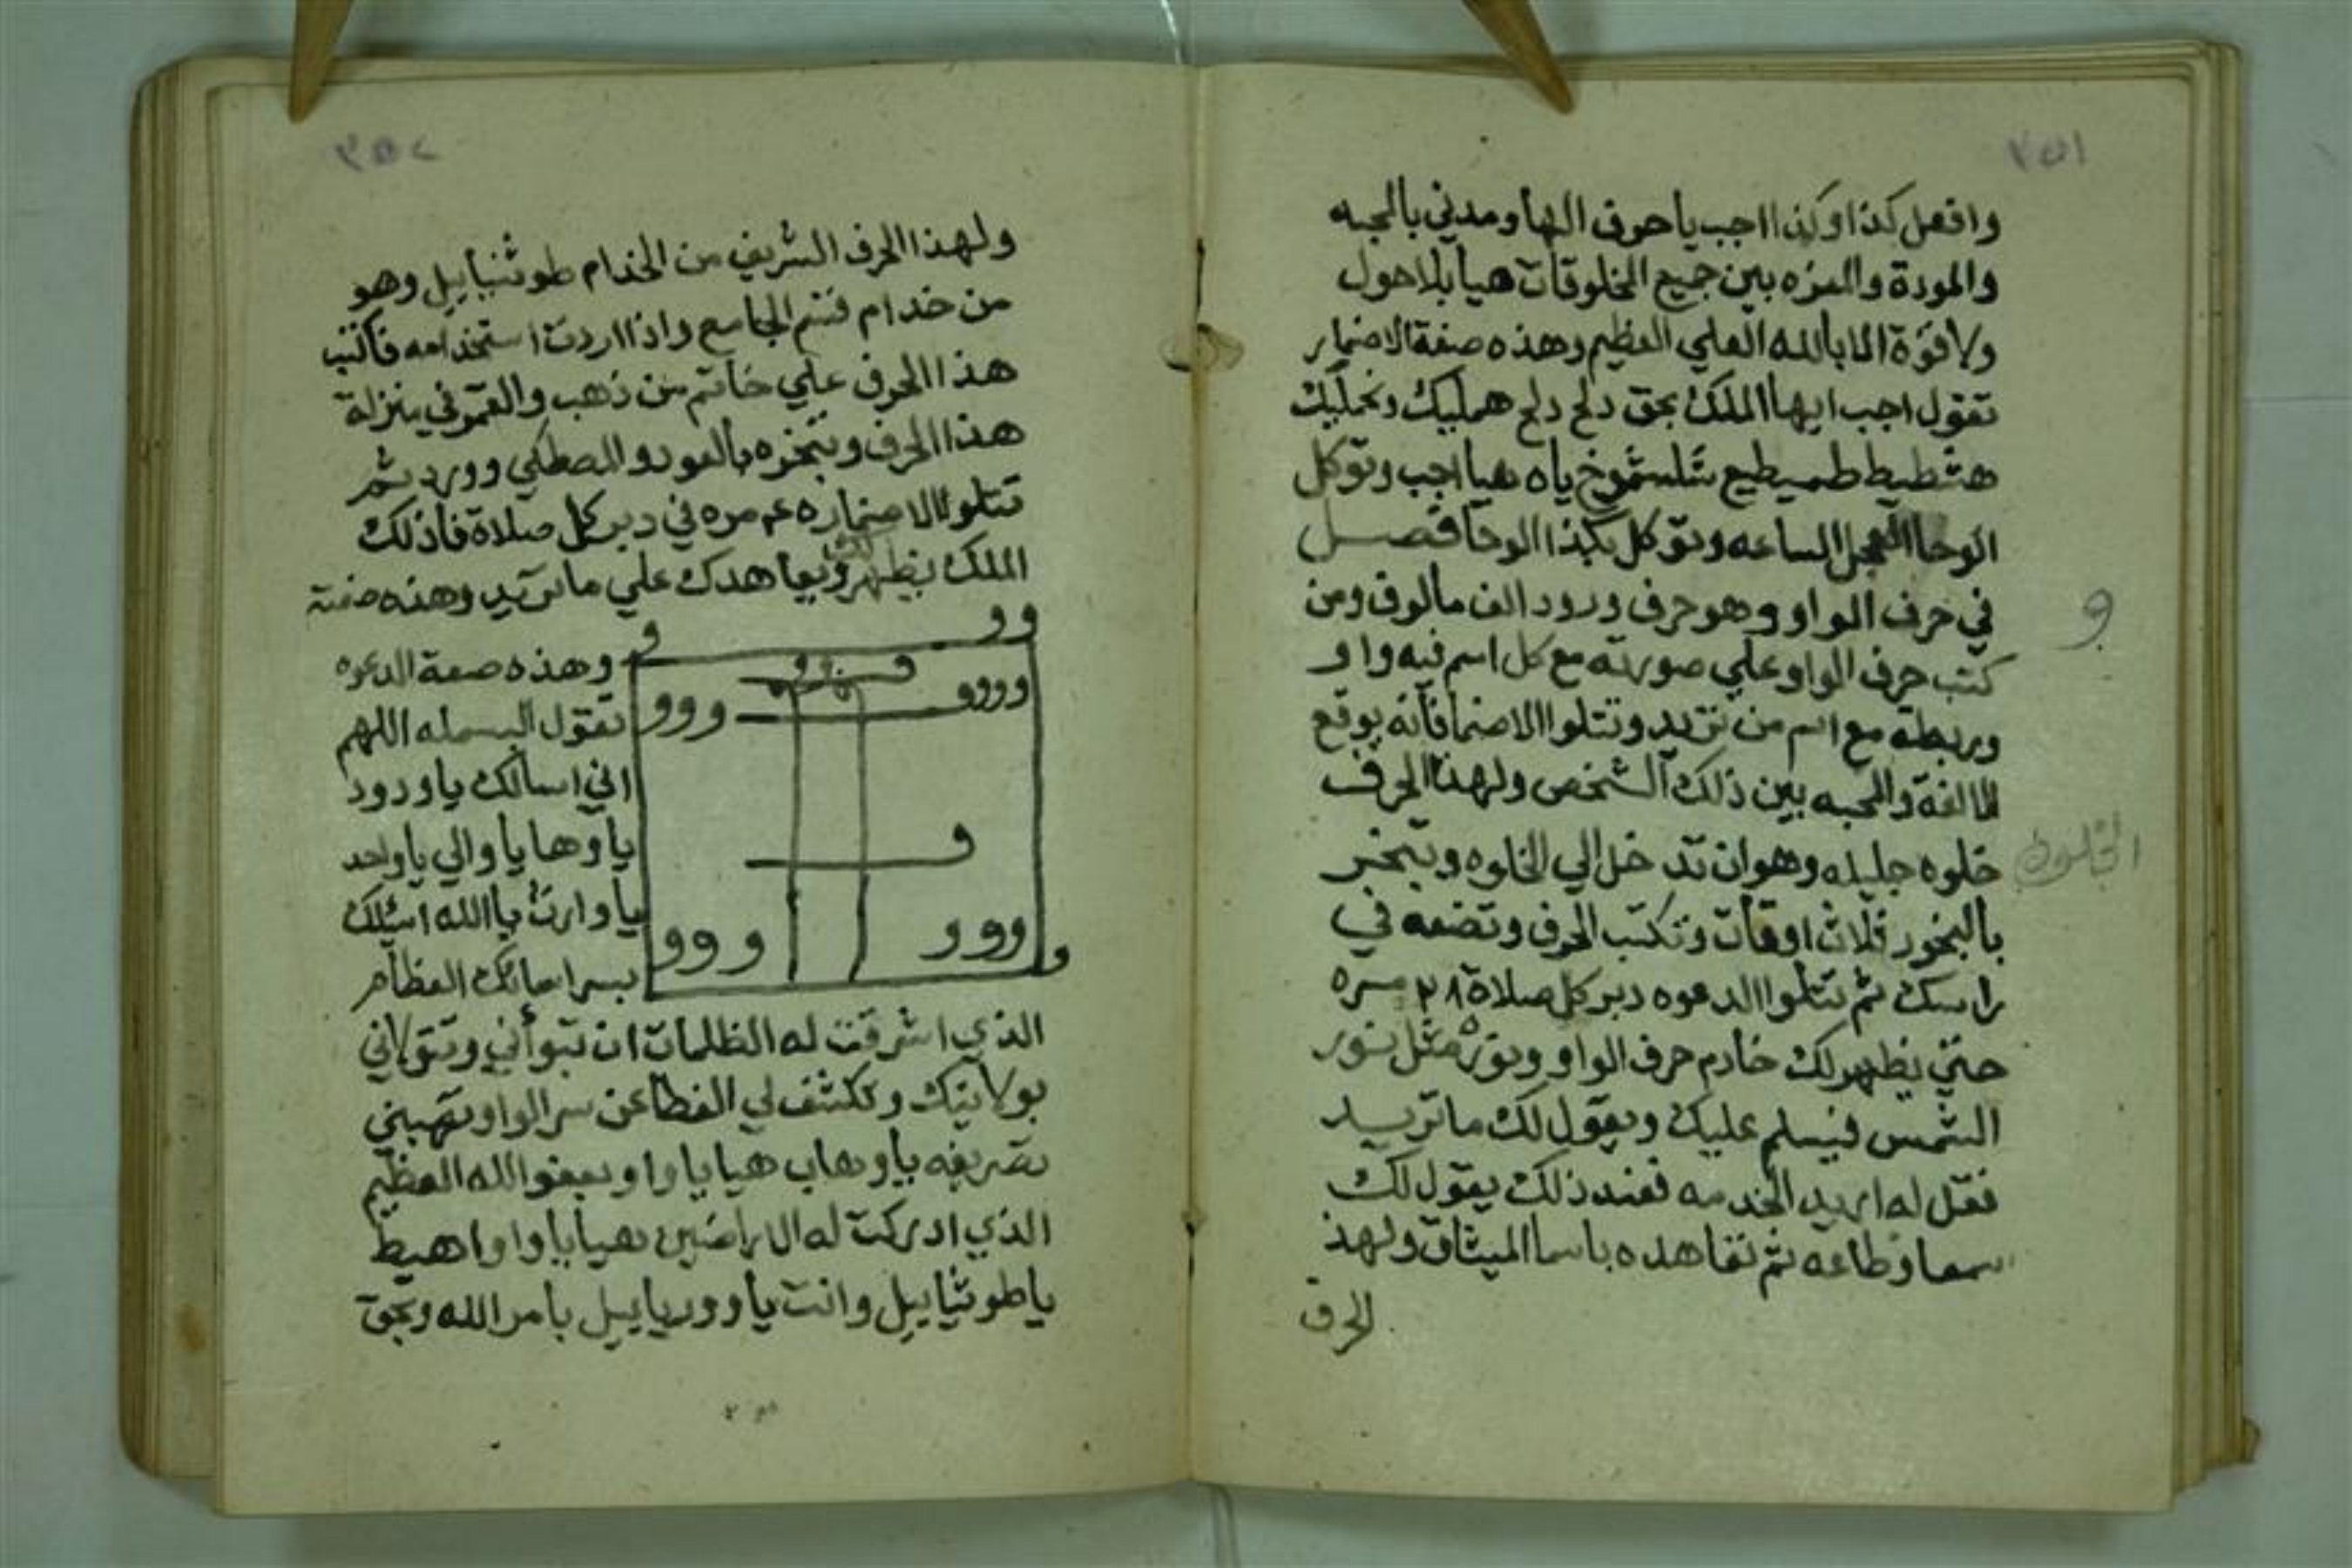 ٢٥١
وافعل كذا وكذا اجب يا حرف الها ومدني بالمحبه
والمودة والعزه بين جميع المخلوقات هيا بلا حول
ولا قوة الا بالله العلي العظيم وهذه صفة الاضمار
تقول اجب ايها الملك بحق دلح دلح هملیك وتحمليك
هشطيط طميطيع شلشموخ ياه هيا اجب وتوكل
الوحا العجل الساعه وتوكل بكذا الوحا فصل
في حرف الواو وهو حرف ورود الف مالوف ومن
كتب حرف الواو علي صورته مع كل اسم فيه واو
وربطه مع اسم من تريد وتتلوا الاضما فانه يوقع
الالفة والمحبه بين ذلك الشخص ولهذا الحرف
خلوه جليله وهو ان تدخل الي الخلوه وتبخر
بالبخور ثلاث اوقات وتكتب الحرف وتضعه في
راسك ثم تتلوا الدعوه دبر كل صلاة ٢٨ مره
حتي يظهر لك خادم حرف الواو ونوره مثل نور
الشمس فيسلم عليك ويقول لك ما تريد
فقل له اريد الخدمه فعند ذلك يقول لك
سمعا وطاعه ثم تعاهده باسما الميثاق ولهذ
الحرف
و
الخلوة
٢٥٢
ولهذا الحرف الشريف من الخدام طوثنيابيل وهو
من خدام قسم الجامع واذا اردت استخدامه فاكتب
هذا الحرف علي خاتم من ذهب والقمر في منزلة
هذا الحرف وتبخره بالعود والمصطكي وورد ثم
تتلوا الاضمار ٤٥ مره في دبر كل صلاة فان ذلك
الملك يظهر لك ويعاهدك علي ما تريد وهذه صفته
و وو
و وو و
ووو وووو
و
ووو ووو
و
وهذه صفة الدعوه
تقول البسمله اللهم
اني اسالك يا ودود
يا وها يا والي يا واحد
يا وارث يا الله اسئلك
بسر اسمائك العظام
الذي اشرقت له الظلمات ان تتوأني وتتولاني
بولايتك وتكشف لي الغطا عن سر الواو وتهبني
تصريفه يا وهاب هيا يا واو بعفو الله العظيم
الذي ادركت له الاراضين هيا يا واو اهيط
يا طوثيابيل وانت يا ووريابيل بامر الله وبحق